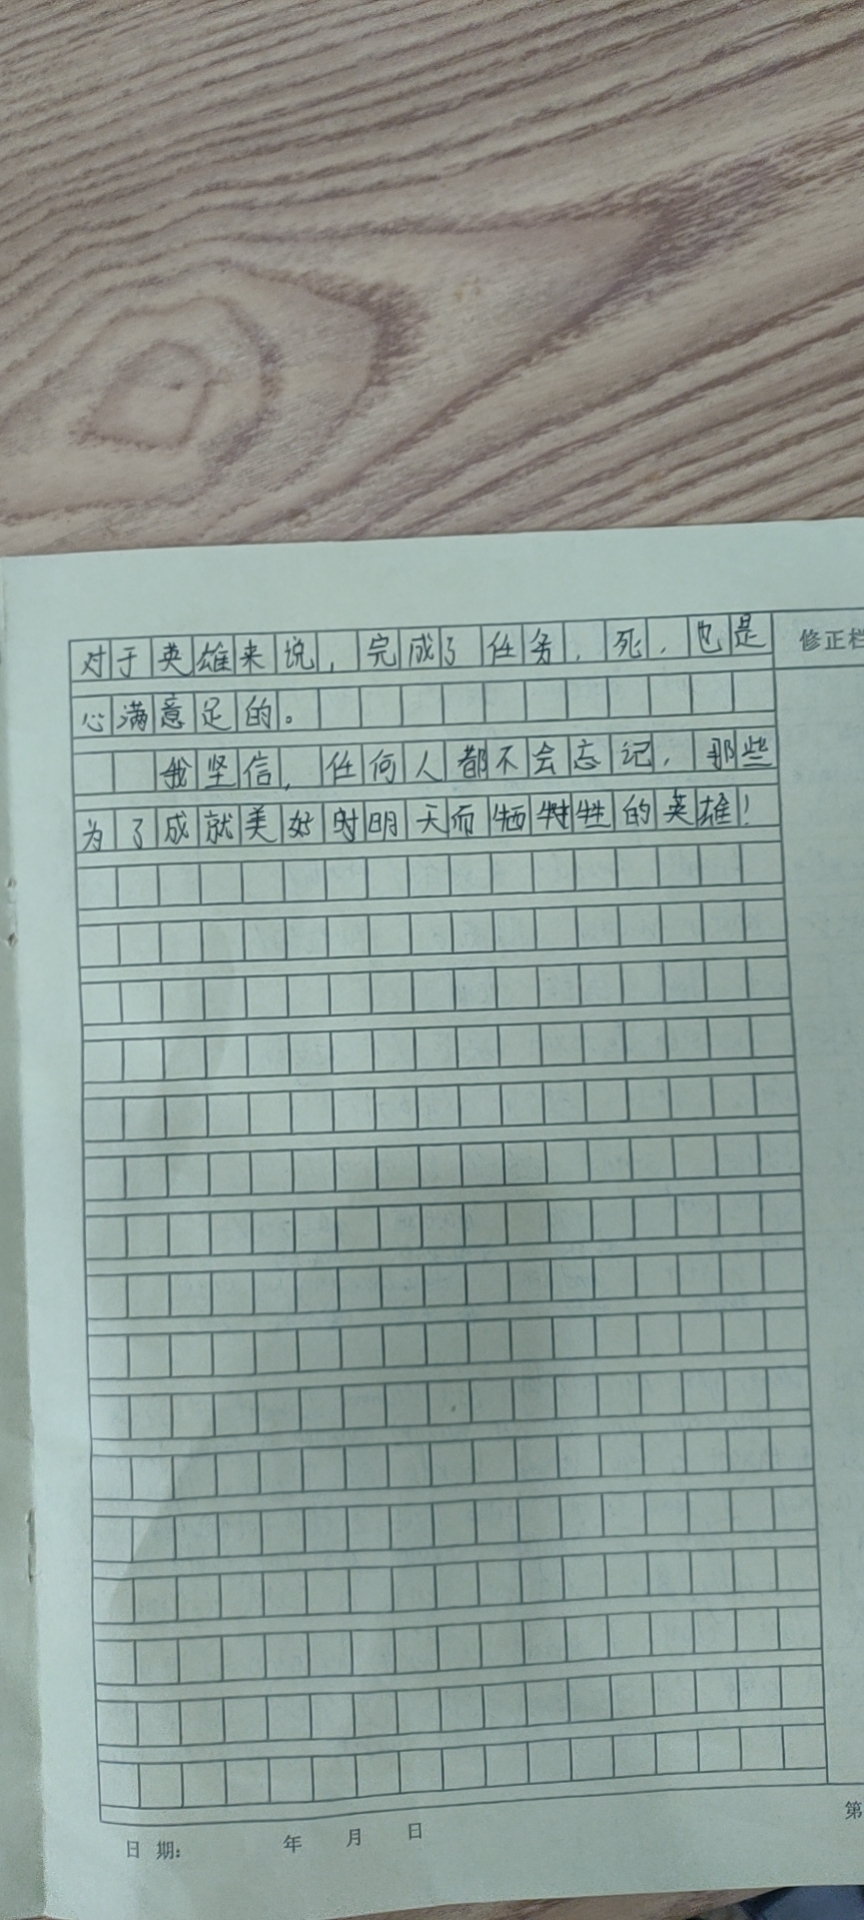 对于英雄来说，完成了任务，死，也是
心满意足的。
我坚信，任何人都不会忘记，那些
为了成就美好时明天而牺牲的英雄！
修正栏
日期： 年 月 日
第